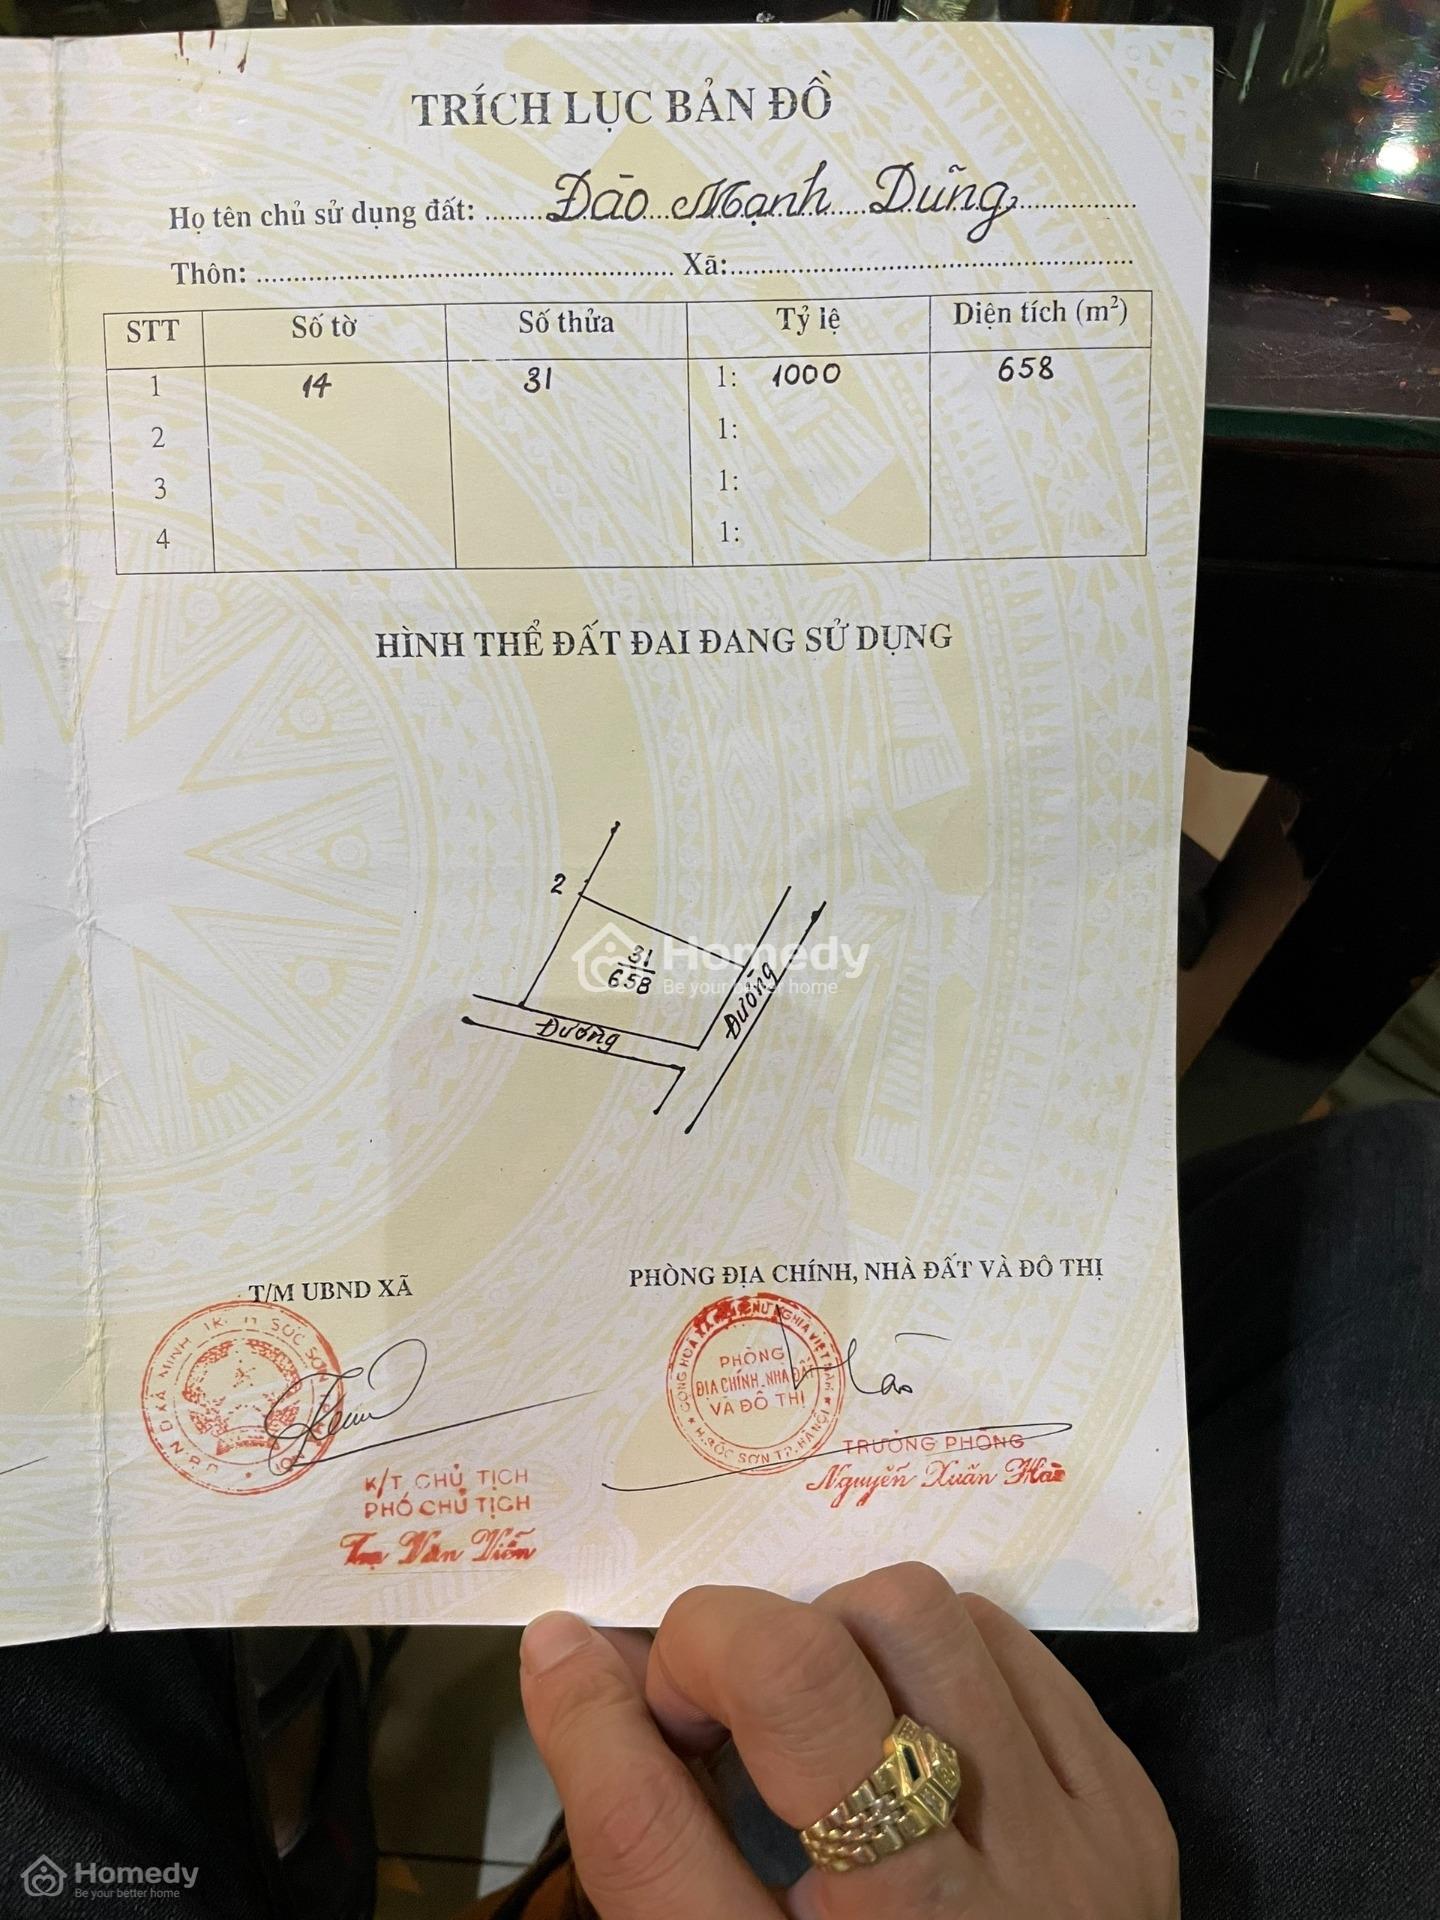 TRÍCH LỤC BẢN ĐỒ
Họ tên chủ sử dụng đất: Đào Mạnh Dũng
Thôn: Xã:
STT Số tờ Số thửa Tỷ lệ Diện tích (m²)
1 14 31 1: 1000 658
2 1:
3 1:
4 1:
HÌNH THỂ ĐẤT ĐAI ĐANG SỬ DỤNG
2
31
658
Homedy
Be your better home
Đường
Đường
T/M UBND XÃ
PHÒNG ĐỊA CHÍNH, NHÀ ĐẤT VÀ ĐÔ THỊ
U.B.N.D XÃ MINH H. SÓC SƠN
K/T CHỦ TỊCH
PHÓ CHỦ TỊCH
Văn Viễn
CỘNG HOÀ XÃ NGHĨA VIỆT NAM
PHÒNG
ĐỊA CHÍNH, NHÀ ĐẤT
VÀ ĐÔ THỊ
H. SÓC SƠN T.P. HÀ NỘI
TRƯỞNG PHÒNG
Nguyễn Xuân
Homedy
Be your better home